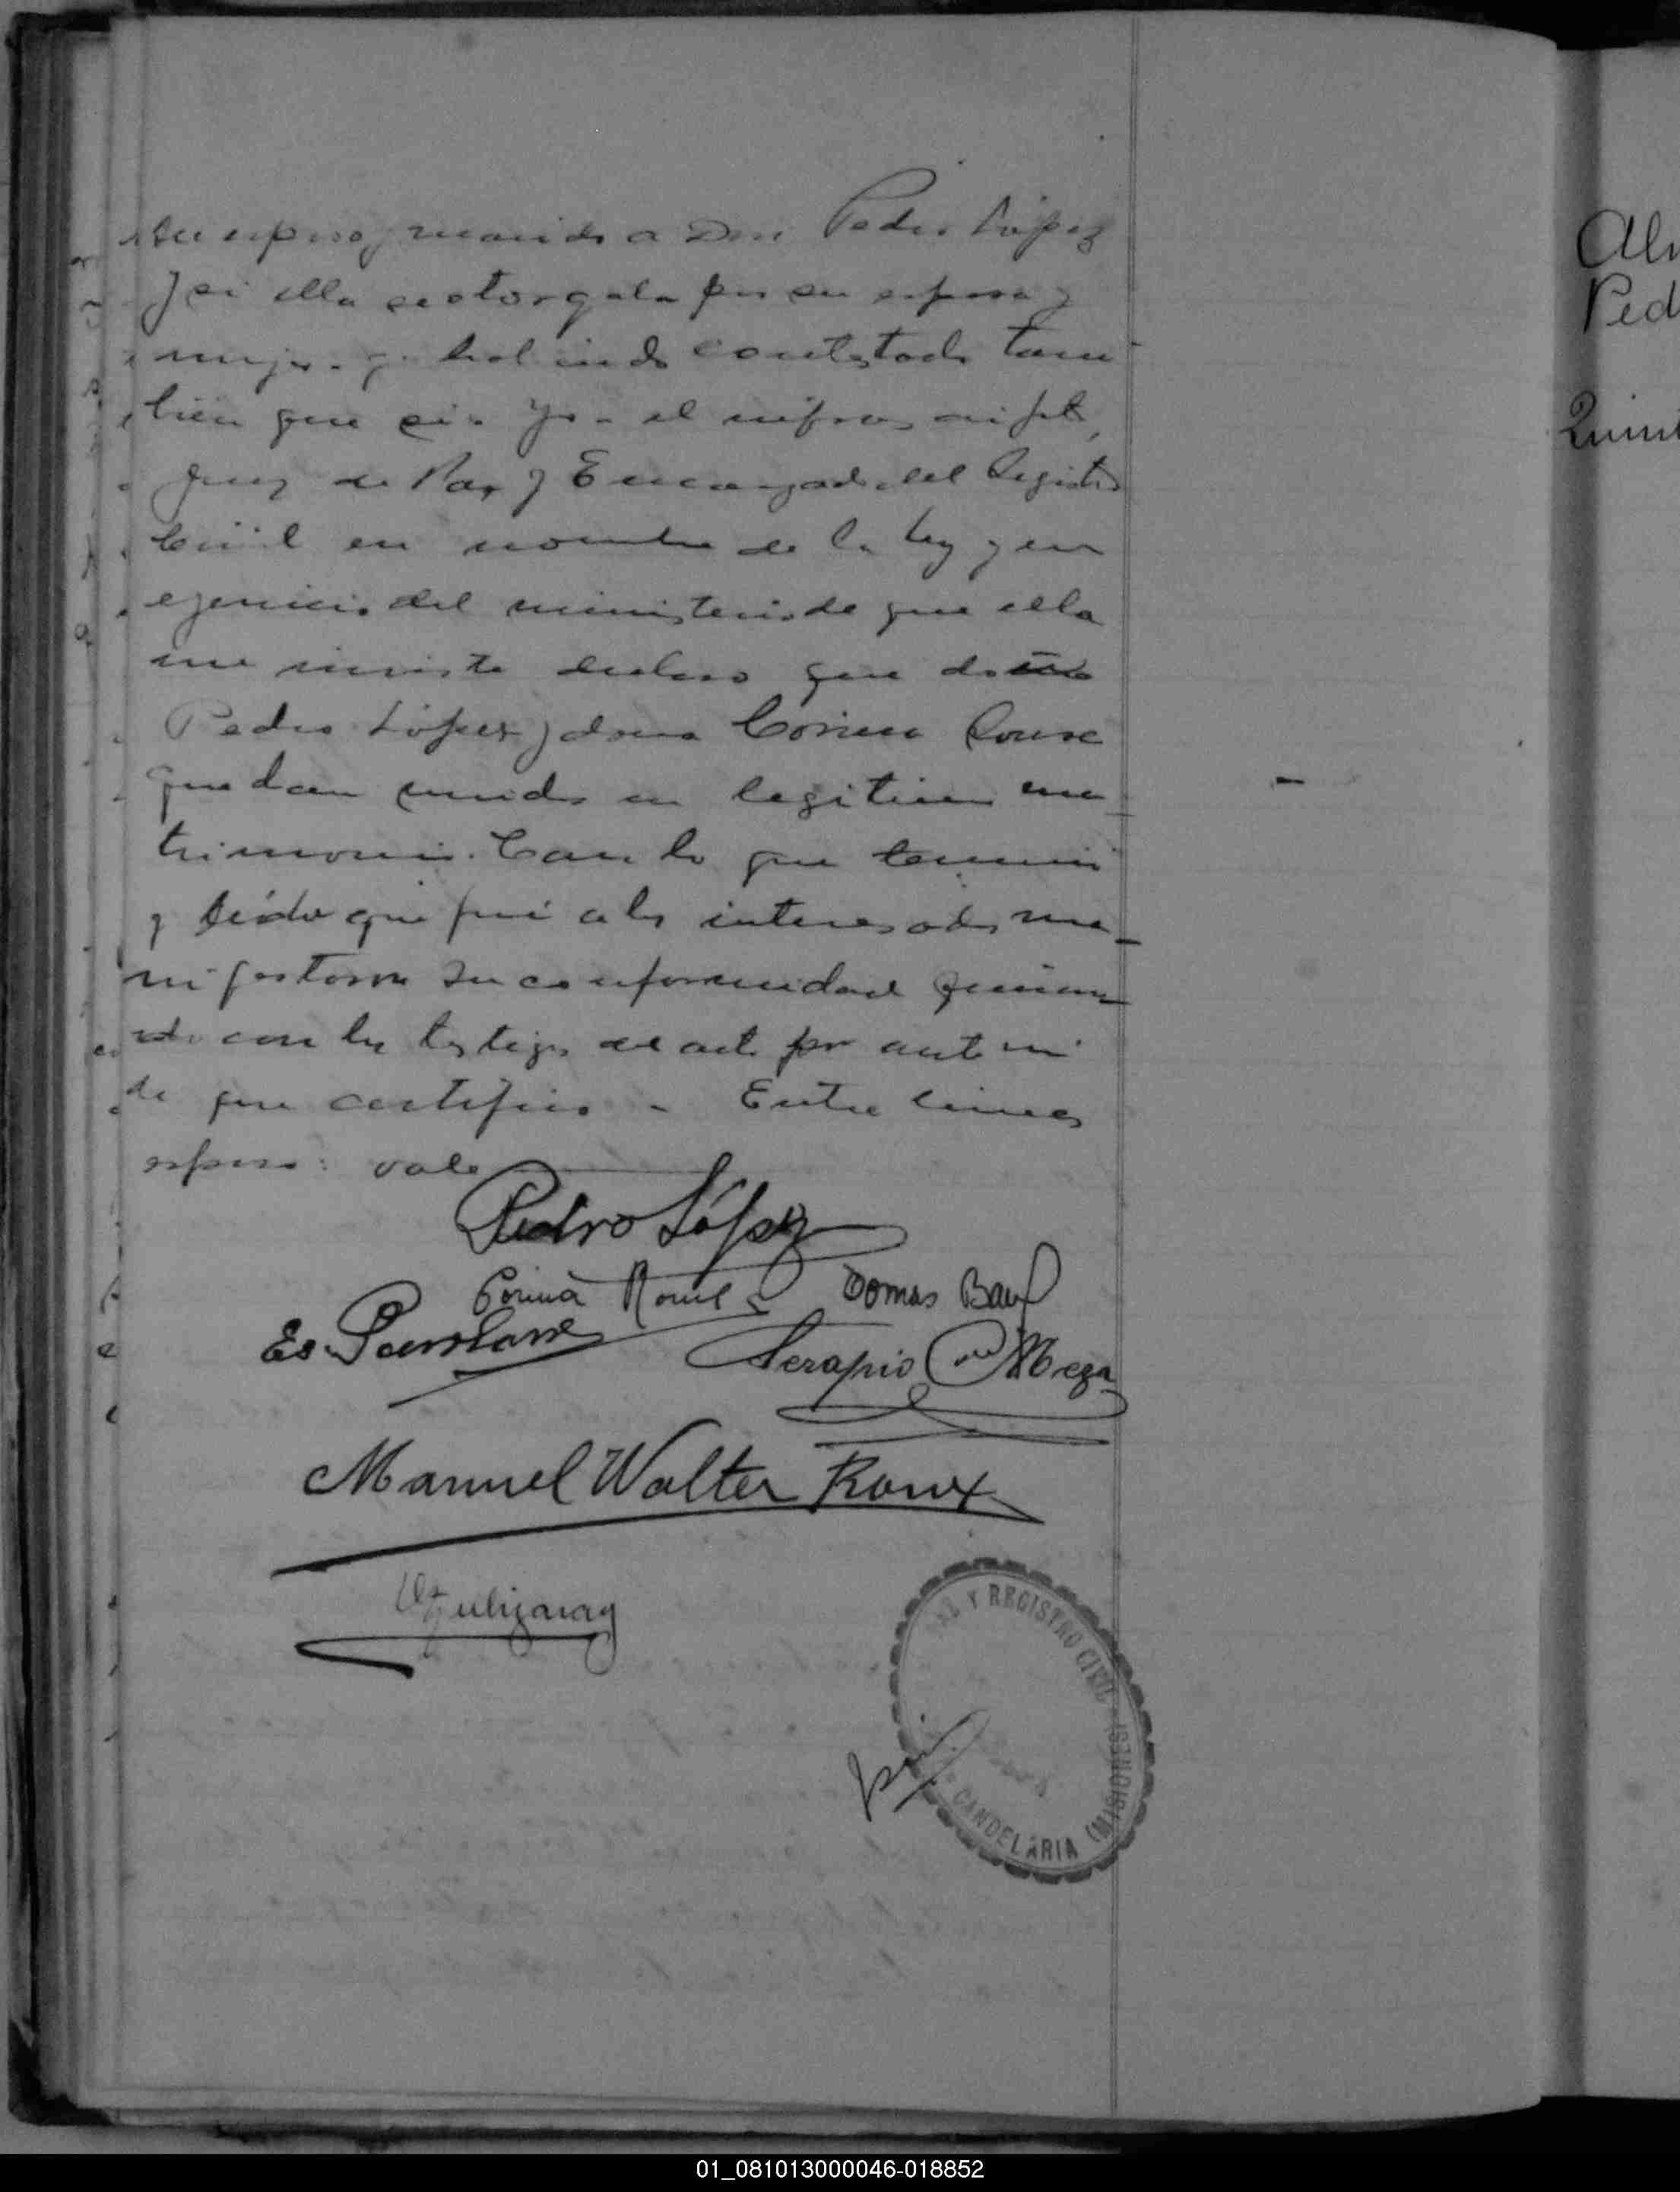 su esposo y marido a Don Pedro López
y si ella se otorgaba por su esposa y
mujer y habiendo contestado tam
bien que si. Yo el infrascripto,
Juez de Paz y Encargado del Registro
Civil en nombre de la ley y en
ejercicio del ministerio de que ella
me inviste declaro que don
Pedro López y doña Corina Roux
quedan unidos en legitimo ma
trimonio. Con lo que terminó
y leído que fué a los interesados ma_
nifestaron su conformidad firman
do con los testigos del acto por ante mi
de que certifico - Entre lineas
esposo: vale
Pedro López
Corina Roux Domas
Es.
Serapio Meza
Manuel Walter Roux
Y REGISTRO CIVIL
CANDELARIA (MISIONES)
Ped
01_081013000046-018852